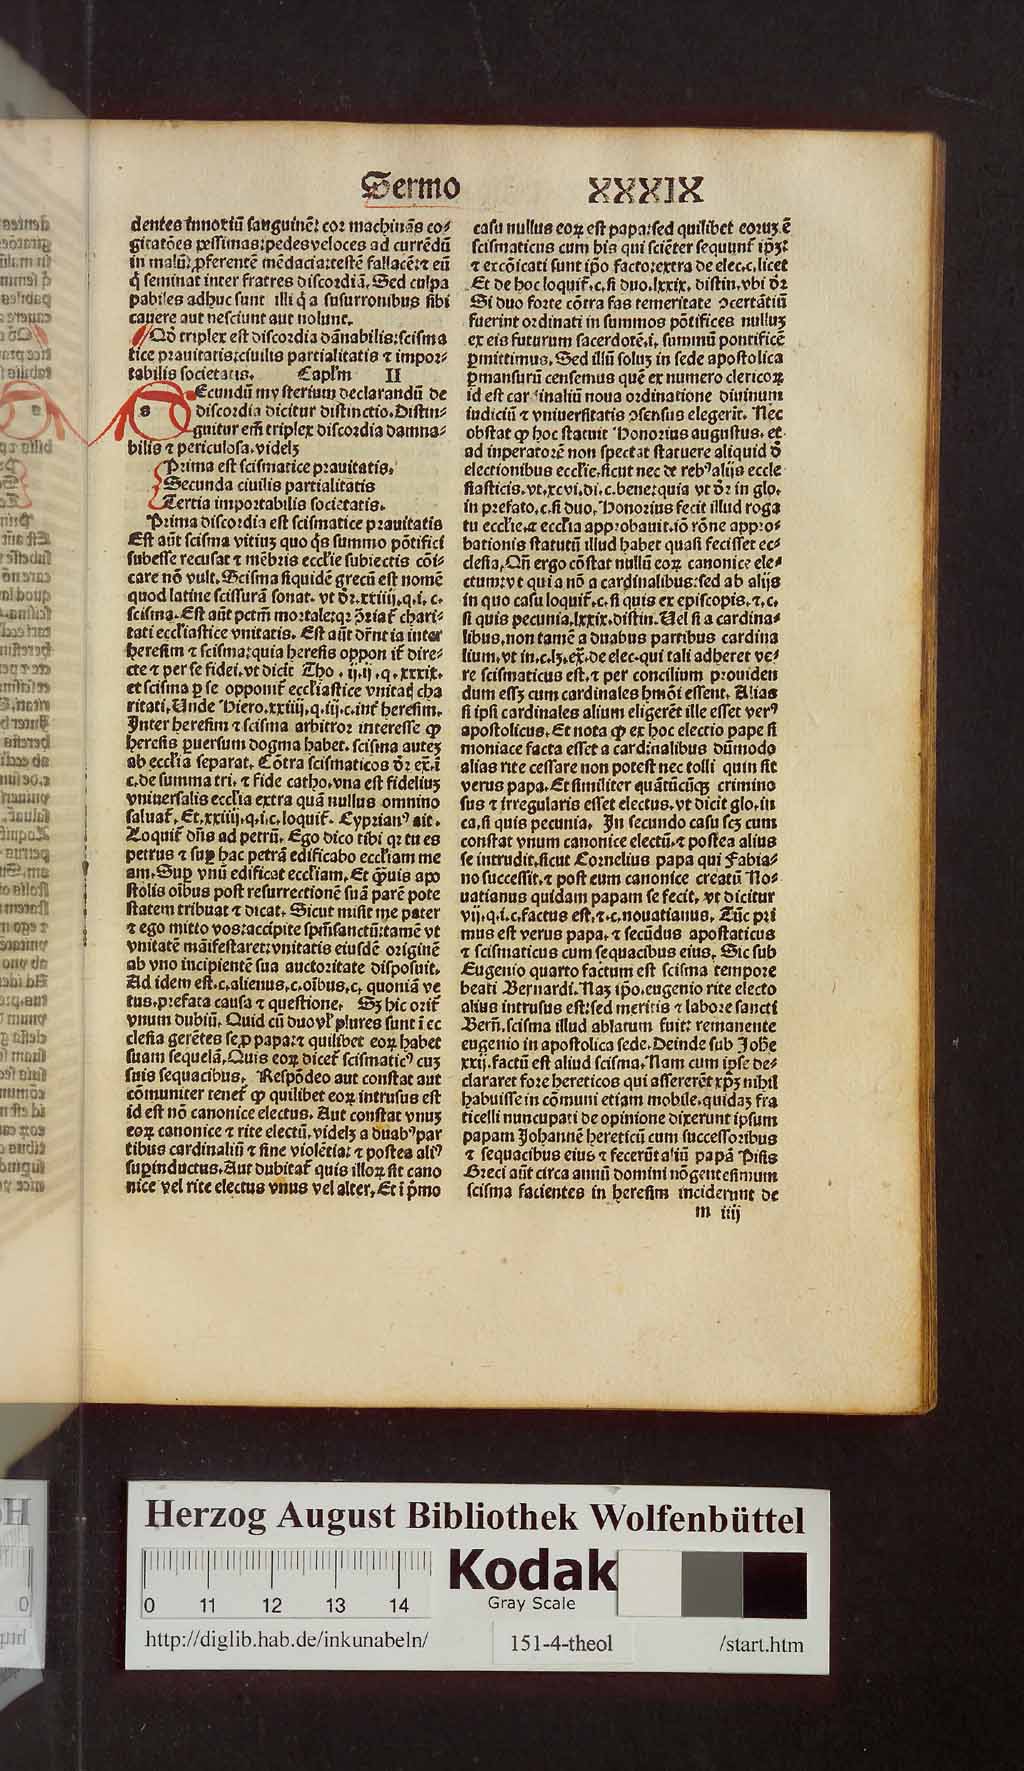 Sermo XXXIX
dentes innoxiū sanguinē: cor machinās co-
gitatōes pessimas: pedes veloces ad currēdū
in malū: ꝓferentē mēdacia: testē fallacē: ⁊ eū
q̇ seminat inter fratres discordiā. Sed culpa
pabiles adhuc sunt illi q̇ a susurronibus sibi
cauere aut nesciunt aut nolunt.
Qd̄ triplex est discordia dānabilis: scisma
tice prauitatis: ciuilis partialitatis ⁊ impor-
tabilis societatis. Caplm̄ II
Ecundū mysterium declarandū de
discordia dicitur distinctio. Distin-
guitur em̄ triplex discordia damna-
bilis ⁊ periculosa. videlꝫ
Prima est scismatice prauitatis.
Secunda ciuilis partialitatis
Tertia importabilis societatis.
Prima discordia est scismatice prauitatis
Est aūt scisma vitiuꝫ quo q̄s summo pōtifici
subesse recusat ⁊ mēbris ecclīe subiectis cōi-
care nō vult. Scisma siquidē grecū est nomē
quod latine scissurā sonat. vt dr̄. xxiiij. q. i. c.
scisma. Est aūt pctm̄ mortale: qꝛ ɔ̄riat̄ chari-
tati ecclīastice vnitatis. Est aūt dr̄ntia inter
heresim ⁊ scisma: quia heresis opponit̄ dire-
cte ⁊ per se fidei. vt dicit Tho. ij. ij. q. xxxix.
et scisma ꝑ se opponit̄ ecclīastice vnitati cha
ritati. Unde Hiero. xxiiij. q. iij. c. int̄ heresim.
Inter heresim ⁊ scisma arbitror interesse ꝙ
heresis ꝑuersum dogma habet. scisma auteꝫ
ab ecclīa separat. Cōtra scismaticos dr̄ ex̄. ī
c. de summa tri. ⁊ fide catho. vna est fideliuꝫ
vniuersalis ecclīa extra quā nullus omnino
saluat̄. Et. xxiiij. q. i. c. loquit̄. Cyprianꝰ ait.
Loquit̄ dn̄s ad petrū. Ego dico tibi qꝛ tu es
petrus ⁊ suꝑ hac petrā edificabo ecclīam me
am. Suꝑ vnū edificat ecclīam. Et q̄uis apo
stolis oībus post resurrectionē suā parē pote
statem tribuat ⁊ dicat. Sicut misit me pater
⁊ ego mitto vos: accipite spm̄sanctū: tamē vt
vnitatē māifestaret: vnitatis eiusdē originē
ab vno incipientē sua auctoritate disposuit.
Ad idem est. c. alienus. c. oībus. c. quoniā ve
tus. prefata causa ⁊ questione. Sꝫ hic orit̄
vnum dubiū. Quid cū duo vl̄ plures sunt ī ec
clesia gerētes se ꝓ papa: ⁊ quilibet eoꝝ habet
suam sequelā. Quis eoꝝ dicet̄ scismaticꝰ cuꝫ
suis sequacibus. Respōdeo aut constat aut
cōmuniter tenet̄ ꝙ quilibet eoꝝ intrusus est
id est nō canonice electus. Aut constat vnuꝫ
eoꝝ canonice ⁊ rite electū. videlꝫ a duabꝰ par
tibus cardinaliū ⁊ sine violētia: ⁊ postea aliꝰ
suꝑinductus. Aut dubitat̄ quis illoꝝ sit cano
nice vel rite electus vnus vel alter. Et ī pⁱmo
casu nullus eoꝝ est papa: sed quilibet eoruꝫ ē
scismaticus cum his qui sciēter sequunt̄ ip̄ꝫ:
⁊ excōicati sunt ip̄o facto: extra de elec. c. licet
Et de hoc loquit̄. c. si duo. lxxix. distin. vbi dr̄
Si duo forte cōtra fas temeritate ɔcertātiū
fuerint ordinati in summos pōtifices nulluꝫ
ex eis futurum sacerdotē. i. summū pontificē
ꝑmittimus. Sed illū soluꝫ in sede apostolica
ꝑmansurū censemus quē ex numero clericoꝝ
id est cardinaliū noua ordinatione diuinum
iudiciū ⁊ vniuersitatis ɔsensus elegerit. Nec
obstat ꝙ hoc statuit Honorius augustus. et
ad inperatorē non spectat statuere aliquid d̄
electionibus ecclīe. sicut nec de rebꝰ alijs eccle
siasticis. vt. xcvi. di. c. bene: quia vt dr̄ in glo.
in prefato. c. si duo. Honorius fecit illud roga
tu ecclīe. ⁊ ecclīa approbauit. iō rōne appro-
bationis statutū illud habet quasi fecisset ec-
clesia. Qn̄ ergo cōstat nullū eoꝝ canonice ele-
ctum: vt qui a nō a cardinalibus: sed ab alijs
in quo casu loquit̄. c. si quis ex episcopis. ⁊. c.
si quis pecunia. lxxix. distin. Uel si a cardina-
libus. non tamē a duabus partibus cardina
lium. vt in. c. lꝫ. ex̄. de elec. qui tali adheret ve-
re scismaticus est. ⁊ per concilium prouiden
dum essꝫ cum cardinales hmōi essent. Alias
si ipsi cardinales alium eligerēt ille esset verꝰ
apostolicus. Et nota ꝙ ex hoc electio pape si
moniace facta esset a cardinalibus dūmodo
alias rite cessare non potest nec tolli quin sit
verus papa. Et similiter quātūcūqꝫ crimino
sus ⁊ irregularis esset electus. vt dicit glo. in
ca. si quis pecunia. In secundo casu scꝫ cum
constat vnum canonice electū. ⁊ postea alius
se intrudit. sicut Cornelius papa qui Fabia-
no successit. ⁊ post eum canonice creatū No-
uatianus quidam papam se fecit. vt dicitur
vij. q. i. c. factus est. ⁊. c. nouatianus. Tūc pri
mus est verus papa. ⁊ secūdus apostaticus
⁊ scismaticus cum sequacibus eius. Sic sub
Eugenio quarto factum est scisma tempore
beati Bernardi. Naꝫ ip̄o. eugenio rite electo
alius intrusus est: sed meritis ⁊ labore sancti
Berñ. scisma illud ablatum fuit: remanente
eugenio in apostolica sede. Deinde sub Johē
xxij. factū est aliud scisma. Nam cum ipse de-
clararet fore hereticos qui assererēt xp̄ꝫ nihil
habuisse in cōmuni etiam mobile. quidaꝫ fra
ticelli nuncupati de opinione dixerunt ipsum
papam Johannē hereticū cum successoribus
⁊ sequacibus eius ⁊ fecerūt aliū papā Pisis
Greci aūt circa annū domini nōgentesimum
scisma facientes in heresim inciderunt de
m iiij
Herzog August Bibliothek Wolfenbüttel
Kodak
Gray Scale
0 11 12 13 14
http://diglib.hab.de/inkunabeln/
151-4-theol
/start.htm